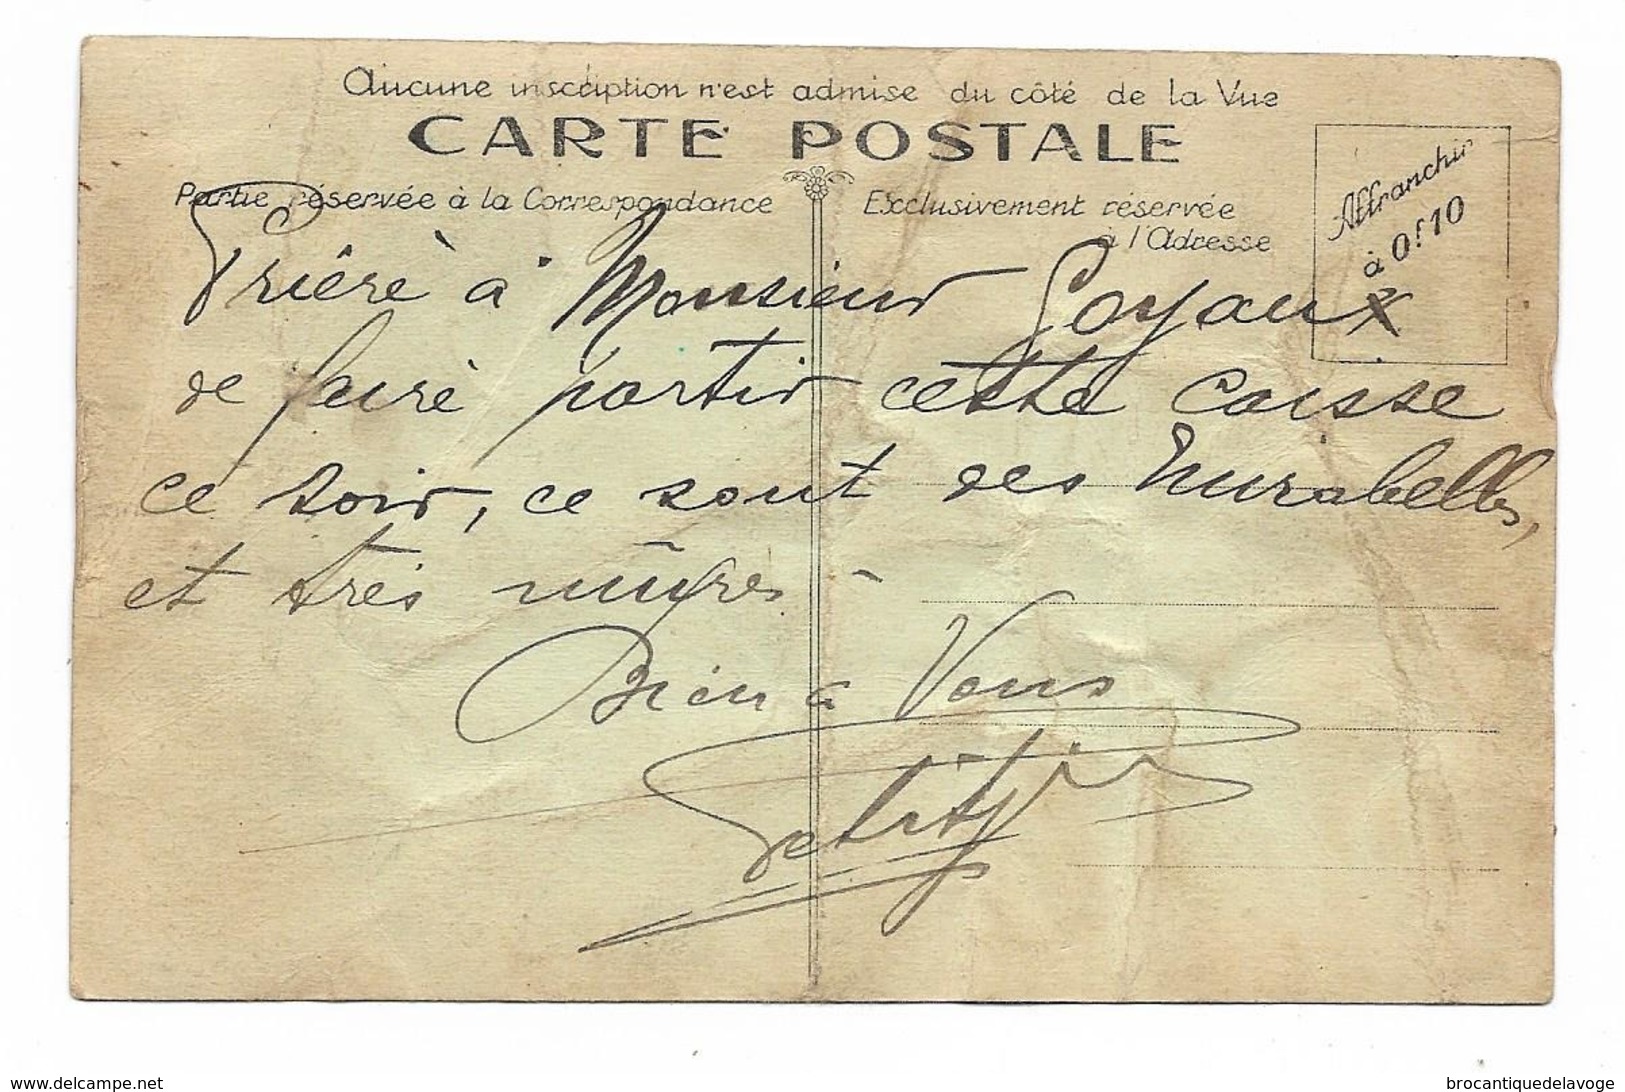 Aucune inscription n'est admise du côté de la Vue
CARTE POSTALE
Partie réservée à la Correspondance
Exclusivement réservée
à l'Adresse
Affranchir
à 0f10
Prière à Monsieur Goyaux
de faire partir cette caisse
ce soir, ce sont des mirabelles,
et très mûres -
Bien à Vous
www.delcampe.net
brocantiquedelavoge